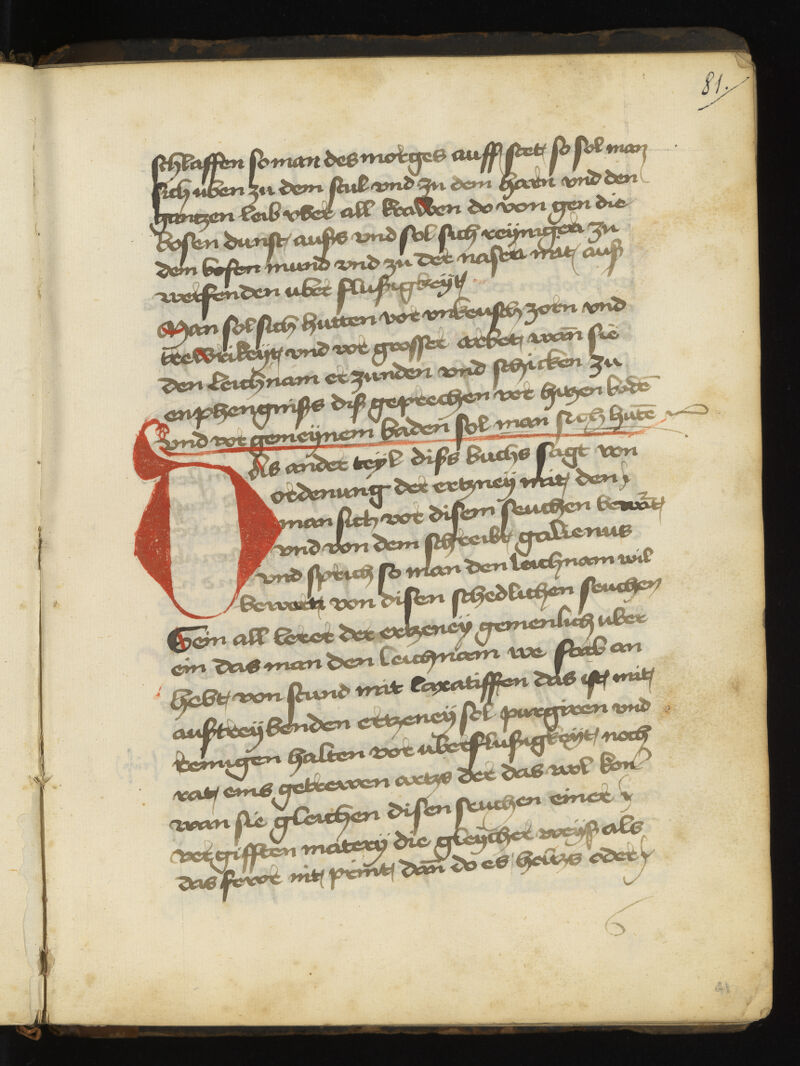 81.
schlaffen so man des morges auff stet so sol man
sich uben zu dem stul vnd zu dem harn vnd den
gantzen leib vber all krawen do von gen die
bosen dunst auß vnd sol sich reynigen zu
dem bosen mund vnd zu der nasen mit auß
werfenden uber flußigkeyt
Man sol sich hutten vor vnkeusch zorn vnd
trewrikeyt vnd vor grosser arbet wan̄ sie
den leichnam er zunden vnd schicken zu
enphengniß diß geprechen vor hitzen badē
vnd vor gemeynem baden sol man sich hutē
Das ander teyl diß buchs sagt von
ordenung der ertzney mit den
man sich vor disem seuchen bewart
vnd von dem schreibt galienus
vnd sprich so man den leichnam wil
bewarn von disen schedlichen seuchen
Sein all lerer der ertzeney gemenlich uber
ein das man den leichnam we stab an
hebt von stund mit laxatiffen das ist mit
außtreybenden ertzeney sol purgiren vnd
reinigen halten vor uberflußigkeyt noch
rat eins getrewen artzs der das wol kon
wan sie gleichen disen seuchen einer
vergifften matery die gleycher weyß als
das fewr nit print dan̄ do es holtzs oder
6
41